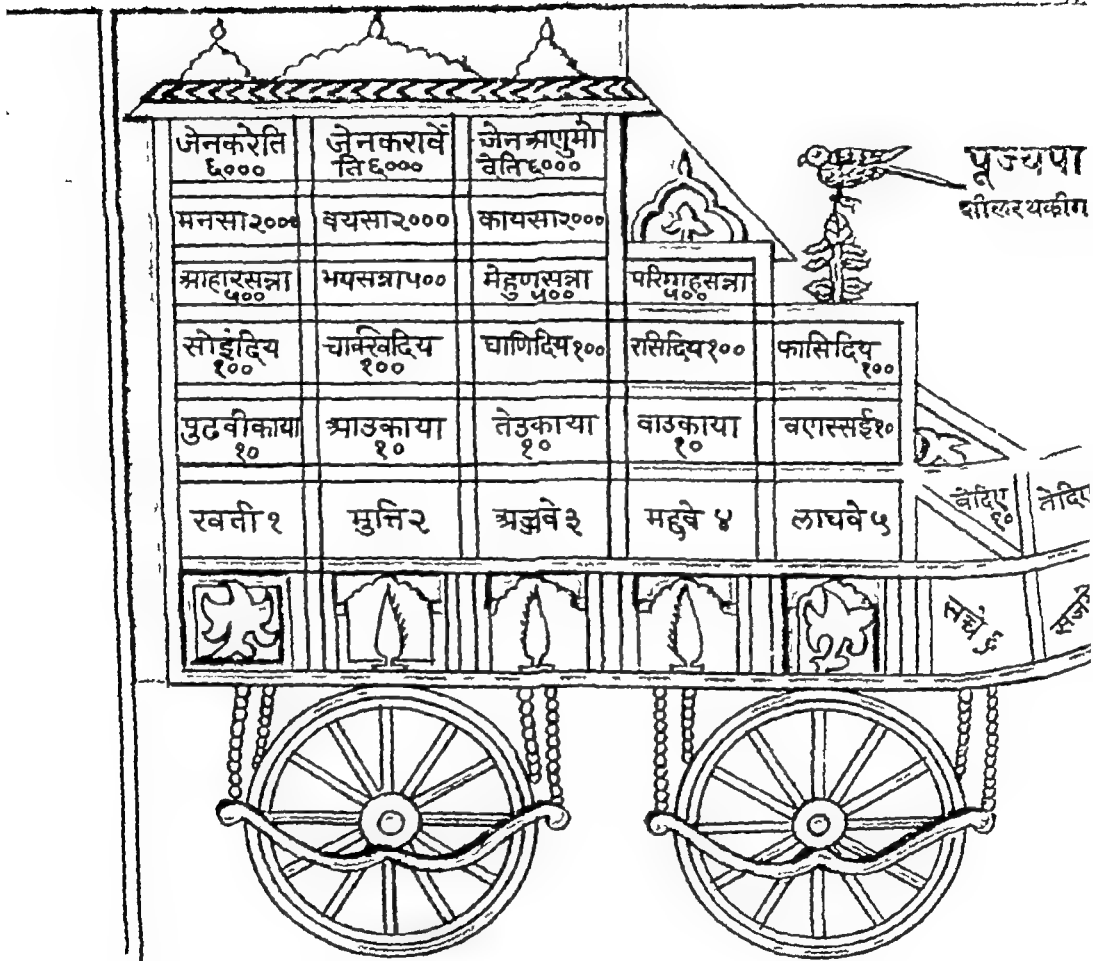 जेनकरेति
६०००
जेनकरावें
ति६०००
जेनअणुमो
वेति६०००
पूज्यपा
शीलरथकीग
मनसा२०००
वयसा२०००
कायसा२०००
आहारसन्ना
५००
भयसन्ना५००
मेहुणसन्ना
५००
परिग्गहसन्ना
५००
सोइंदिय
१००
चक्खिदिय
१००
घाणिदिय१००
रसिदिय१००
फासिदिय
१००
पुढवीकाया
१०
आउकाया
१०
तेउकाया
१०
वाउकाया
१०
वणस्सई१०
बेदिए
१०
तेदिए
खती१
मुत्ति२
अज्जवे३
मद्दवे ४
लाघवे५
सच्चे ६
संजमे